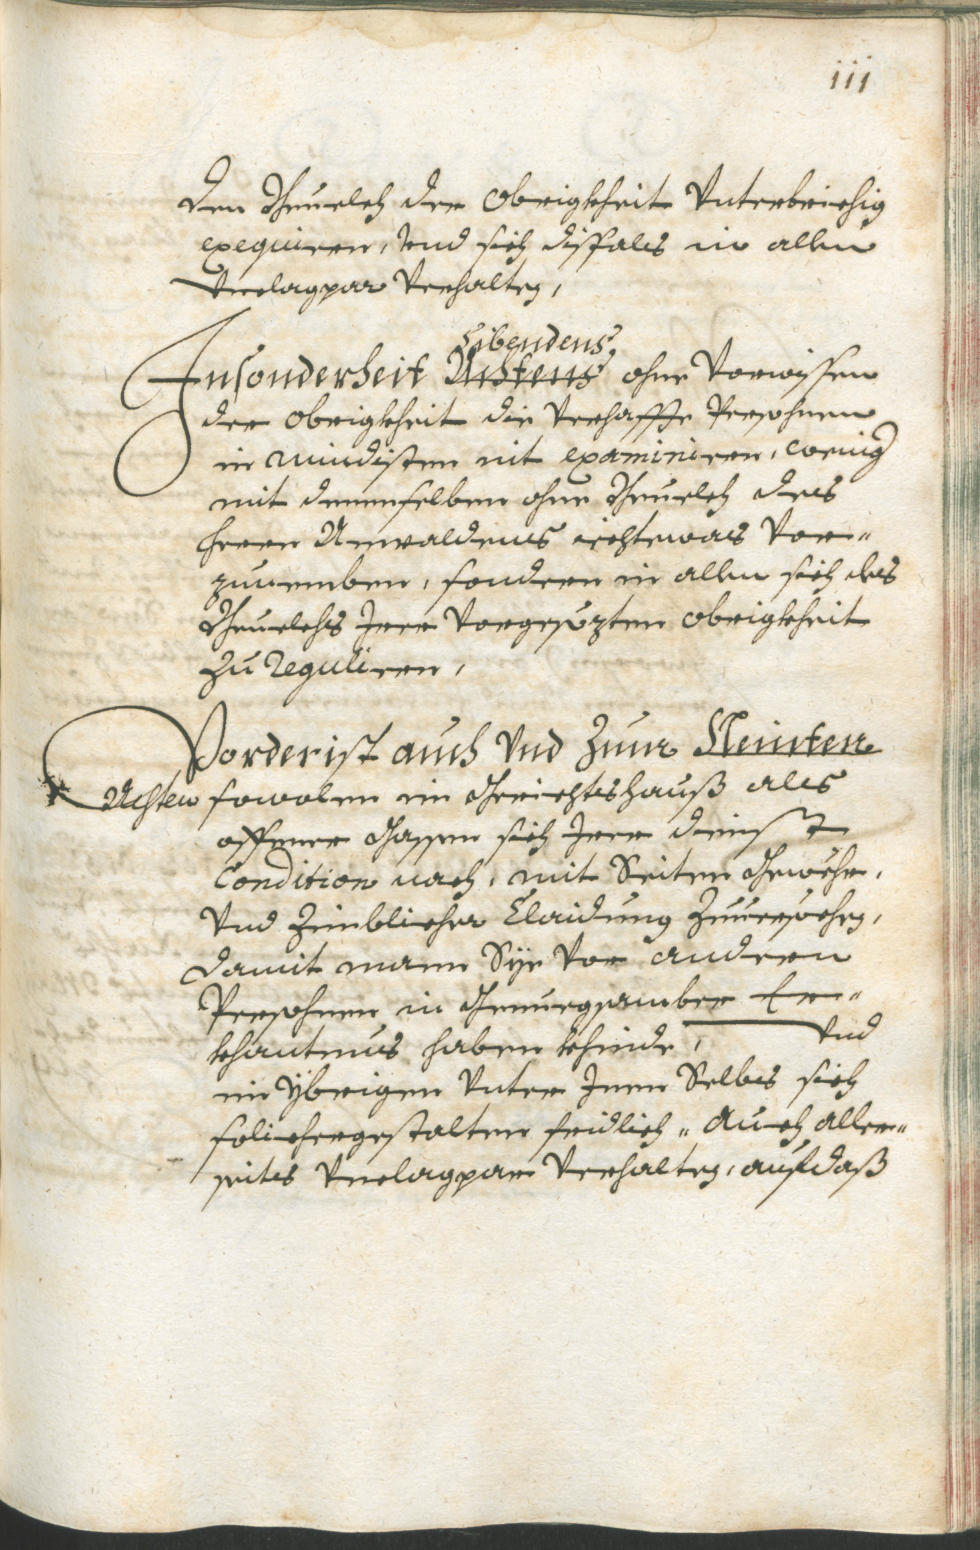 111
den Bevelch der Obrigkheit Unterbrichig
exequiren, und sich dißfals in allen
Unclagpar Verhalten,
Sibendens
Insonderheit Achtens ohne Vorwissen
der Obrigkheit die Verhaffte Persohnen
im mindisten nit examiniren, wenig
mit denenselben ohne Bevelch des
Herrn Anwaldens ichtwas Vor-
zunemben, sondern in allen sich des
Bevelchs Irer Vorgesezten Obrigkheit
zu Regulieren,
Vorderist auch Und Zum Neinten
Achten sowolen im Gerichtshauß als
offener Gassen sich Irer Dienst
Condition nach, mit Seiten Gewöhr,
Und Zimblicher Claidung Zuversechen,
damit mann Sye Vor andern
Persohnen in Genuegsamber Er-
khantnus haben khinde, Und
im Ybrigen Unter Inen Selbs sich
solichergestalten fridlich- auch aller-
seits Unclagpar Verhalten, aufdaß